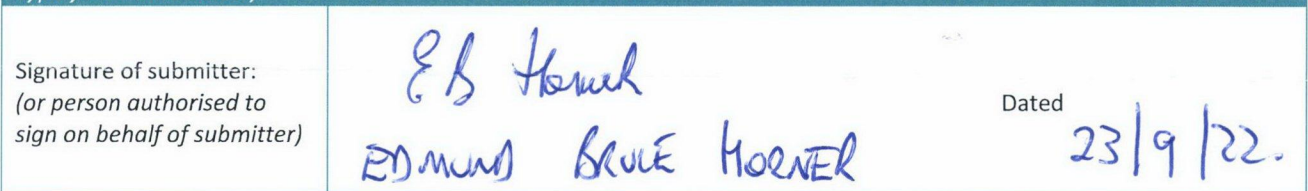 Signature of submitter:
(or person authorised to
sign on behalf of submitter)
E B Horner
EDMUND BRUCE HORNER
Dated
23/9/22.